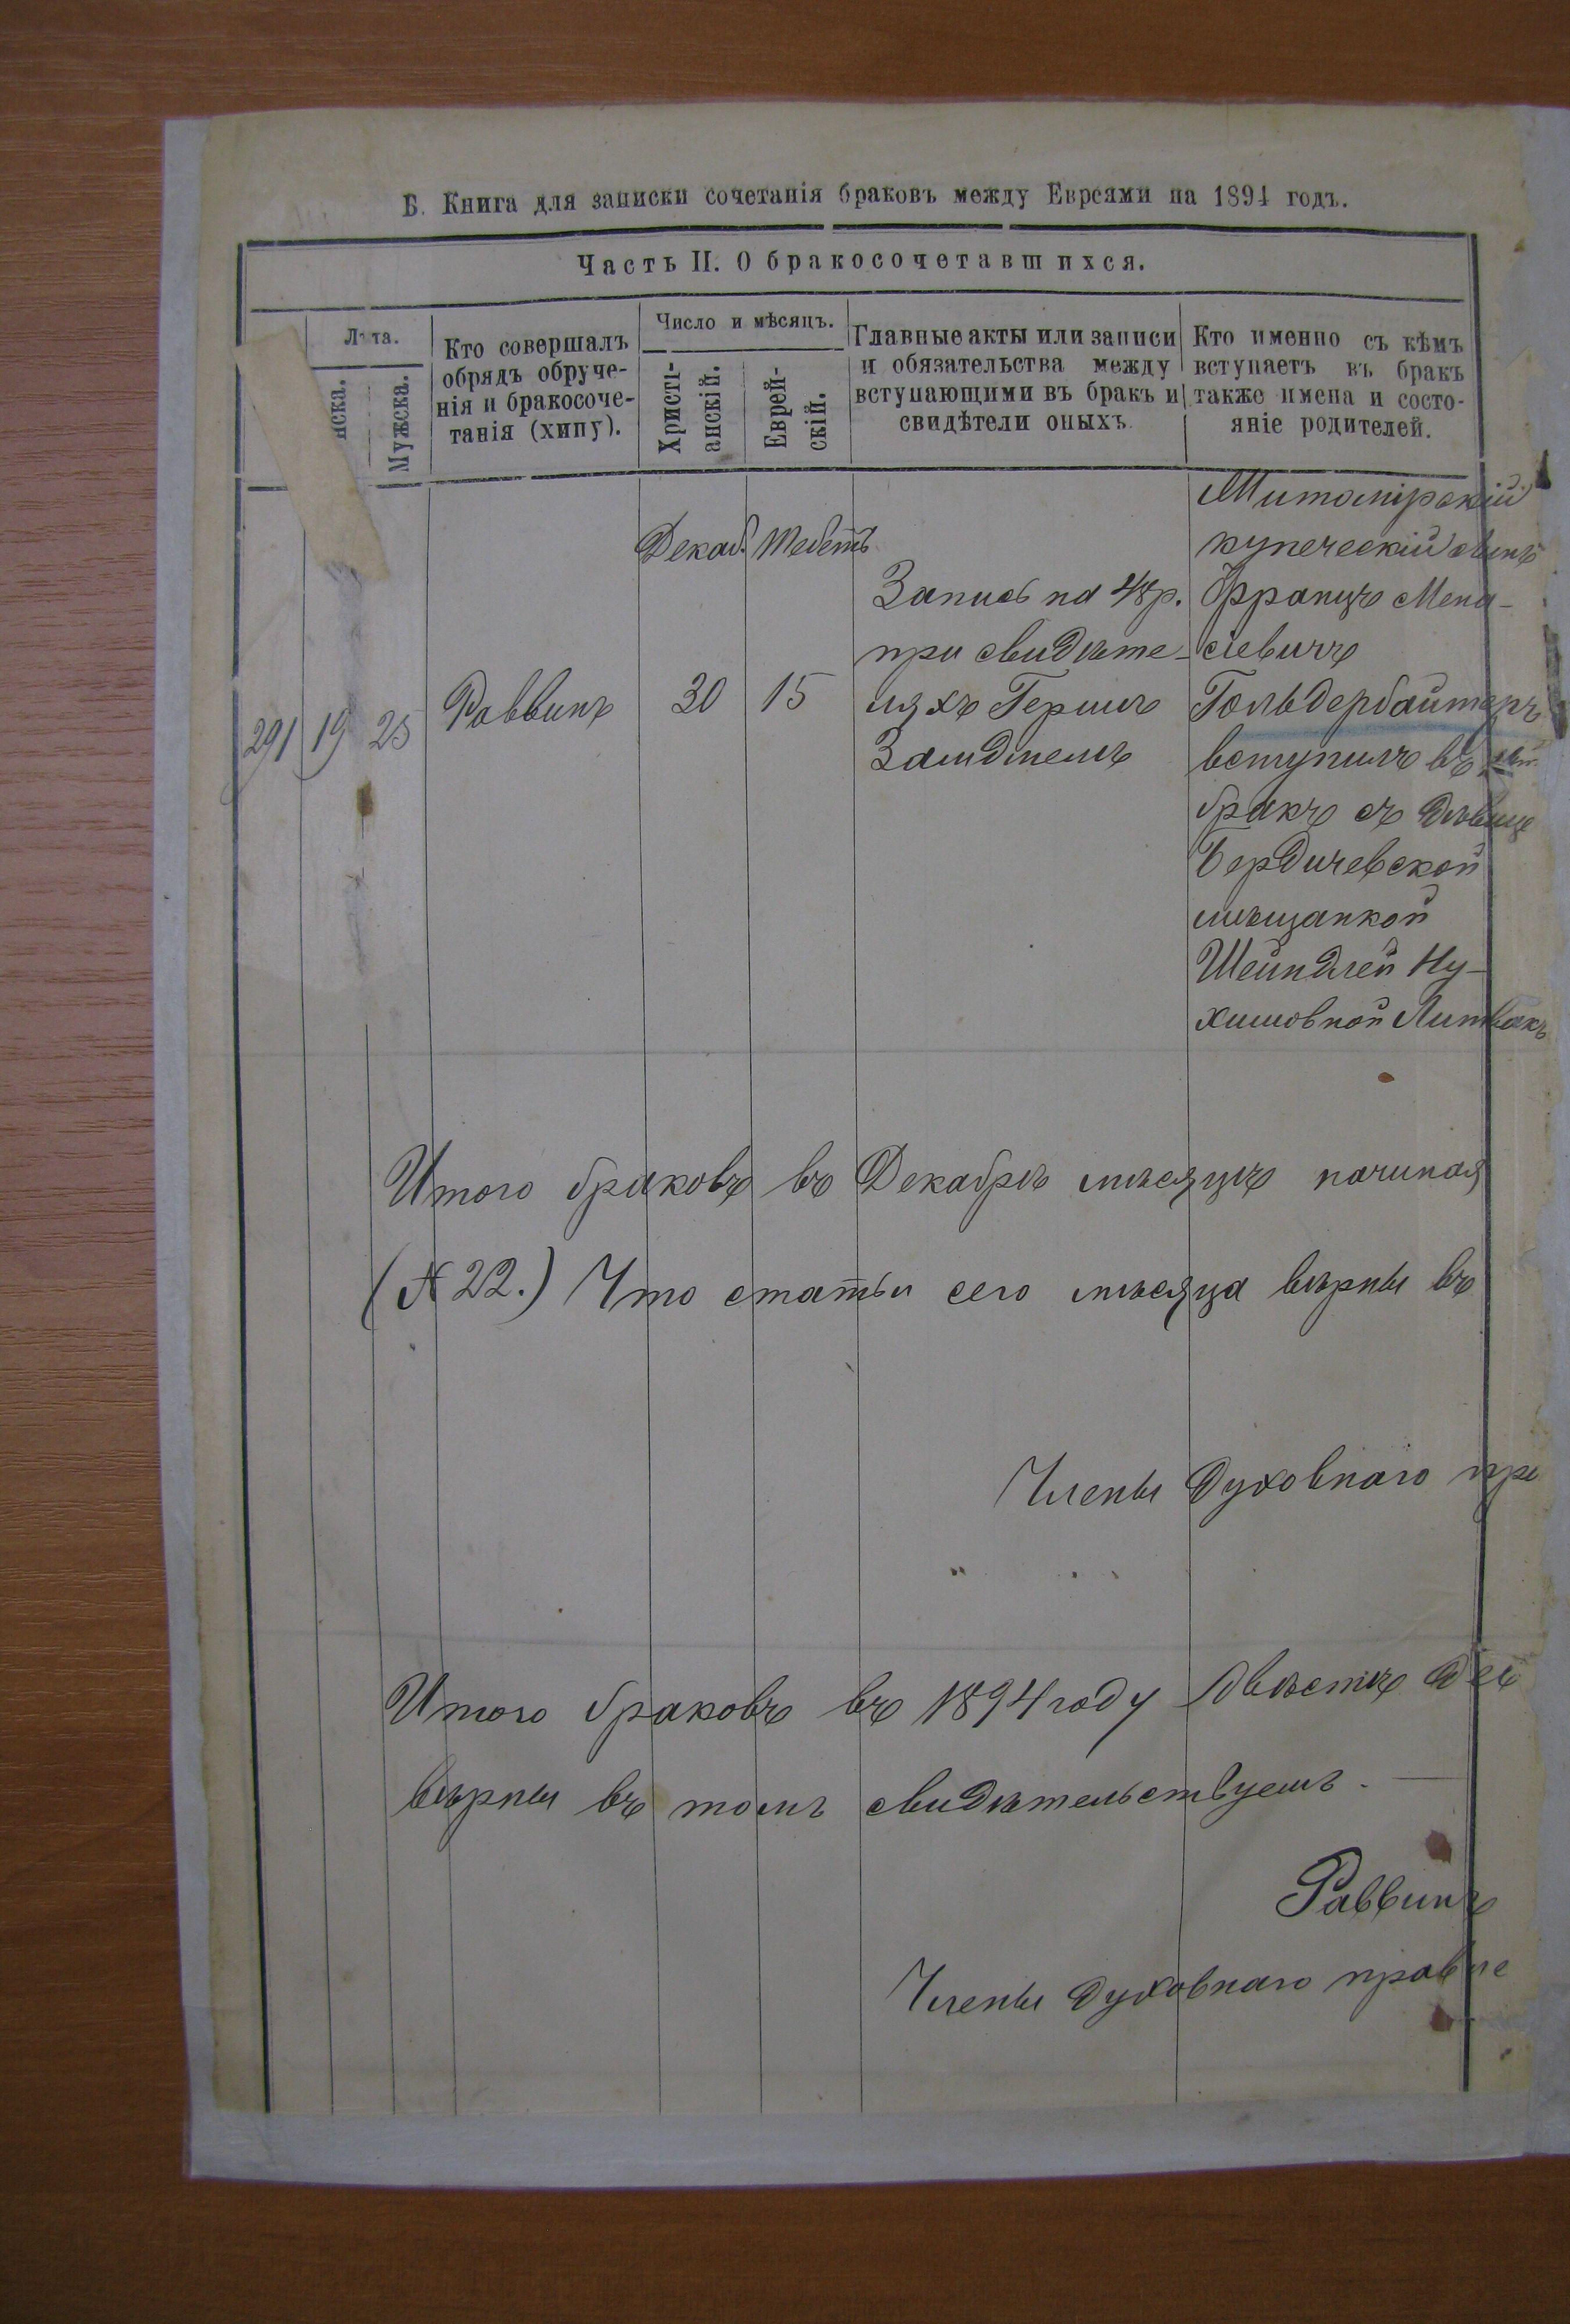 Б. Книга для записки сочетанія браковъ между Евреями на 1894 годъ.
Часть II. О бракосочетавшихся.
Лѣта.
нска.
Мужска.
Кто совершалъ
обрядъ обруче-
нія и бракосоче-
танія (хипу).
Число и мѣсяцъ.
Христі-
анскій.
Еврей-
скій.
Главные акты или записи
и обязательства между
вступающими въ бракъ и
свидѣтели оныхъ.
Кто именно съ кѣмъ
вступаетъ въ бракъ
также имена и состо-
яніе родителей.
291
19
25
Раввинъ
Декаб.
30
Тебетъ
15
Запись на 48р.
при свидѣте-
ляхъ Гершъ
Житомірскій
купеческій сынъ
Францъ Мена-
сіевичъ
Гольдербайтеръ
вступилъ въ
бракъ съ дѣвице
Бердичевской
мѣщанкой
Шейндлей Ну-
химовной Литвакъ
Итого браковъ въ Декабрѣ мѣсяцѣ начиная
(№ 22.) Что статьи сего мѣсяца вѣрны въ
Члены Духовнаго пра
Итого браковъ въ 1894 году двѣстѣ дев
вѣрны въ томъ свидѣтельствуемъ.
Раввинъ
Члены духовнаго правле